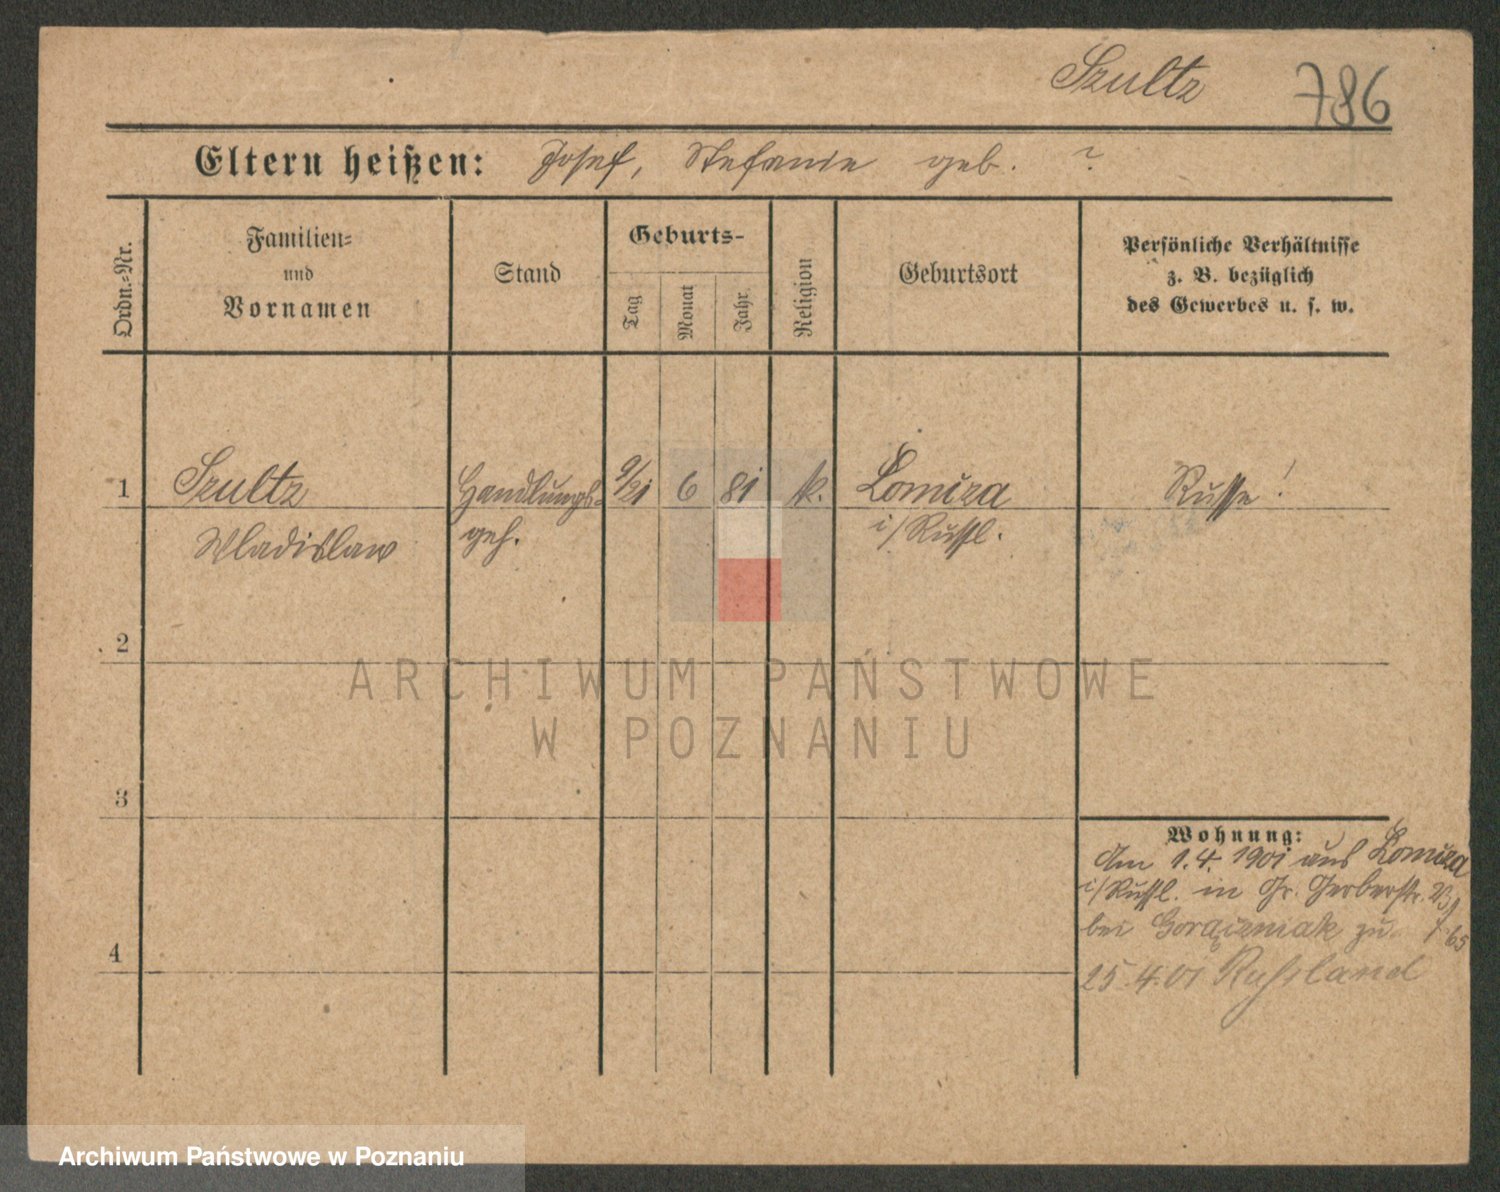 Szultz 786
Eltern heißen: Josef, Stefanie geb. ?
Ordn.=Nr.
Familien=
und
Vornamen
Stand
Geburts-
Tag
Monat
Jahr
Religion
Geburtsort
Persönliche Verhältnisse
z. B. bezüglich
des Gewerbes u. s. w.
1 Szultz Handlungs= 9/21 6 81 k. Łomża Russe!
Wladislaw geh. i/Russl.
2
ARCHIWUM PAŃSTWOWE
W POZNANIU
3
Wohnung:
Am 1.4.1901 aus Łomża
i/Russl. in Gr. Gerberstr.
bei zu
4
25.4.01 Russland
Archiwum Państwowe w Poznaniu